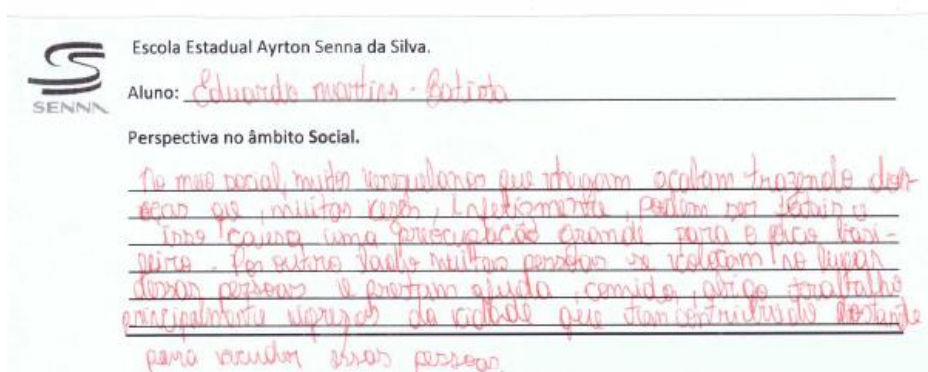 Escola Estadual Ayrton Senna da Silva.
SENNA
Aluno: Eduardo martins - Batista
Perspectiva no âmbito Social.
No meio social, muitos venezuelanos que chegam acabam trazendo do-
enças que, muitas vezes, infelizmente, podem ser fatais e
isso causa uma preocupação grande para o povo
. Por outro lado muitas pessoas se colocam no lugar
dessas pessoas e prestam ajuda, comida, abrigo trabalho
principalmente igrejas da cidade que contribuido bastante
para essas pessoas.